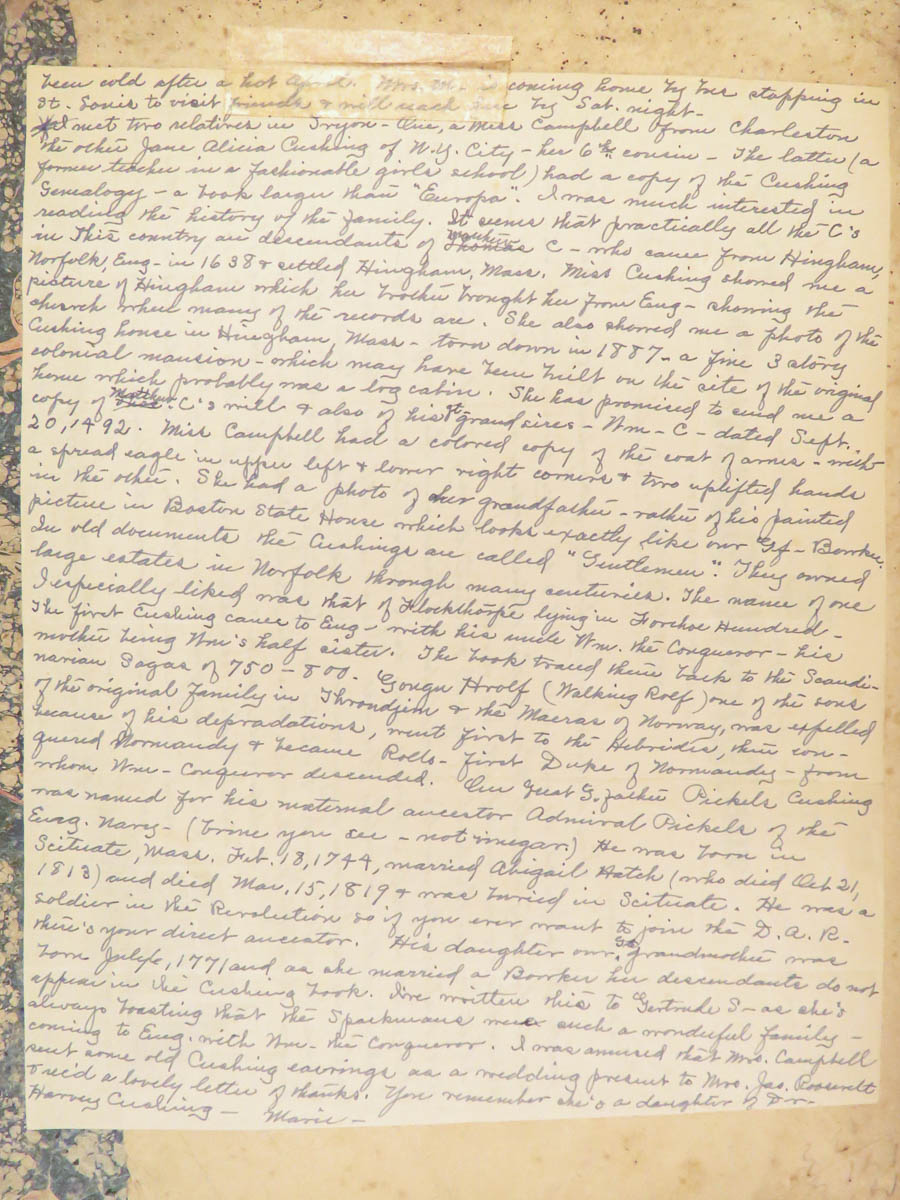 been cold after a hot April. Mrs. is coming home by bus stopping in
St. Louis to visit friends & will reach here by Sat. night-
I met two relatives in Tryon - One, a Miss Campbell from Charleston
the other Jane Alicia Cushing of N.Y. City - her 6th cousin - The latter (a
former teacher in a fashionable girls' school) had a copy of the Cushing
Genealogy - a book larger than "Europa". I was much interested in
reading the history of the family. It seems that practically all the C's
in this country are descendants of Thomas Matthew C - who came from Hingham,
Norfolk, Eng - in 1638 & settled Hingham, Mass. Miss Cushing showed me a
picture of Hingham which her brother brought her from Eng - showing the
church where many of the records are. She also showed me a photo of the
Cushing house in Hingham, Mass - torn down in 1887 - a fine 3 story
colonial mansion - which may have been built on the site of the original
home which probably was a log cabin. She has promised to send me a
copy of Thos. Matthew C's will & also of his gt grandsires - Wm - C - dated Sept.
20, 1492. Miss Campbell had a colored copy of the coat of arms - with
a spread eagle in upper left & lower right corners & two uplifted hands
in the other. She had a photo of her grandfather - rather of his painted
picture in Boston State House which looks exactly like our Gf - Bowker.
In old documents the Cushings are called "Gentlemen". They owned
large estates in Norfolk through many centuries. The name of one
I especially liked was that of Flockthorpe lying in Forehoe Hundred -
The first Cushing came to Eng - with his uncle Wm. the Conqueror - his
mother being Wm's half sister. The book traced them back to the Scandi-
narian Sagas of 750 - 800. Gongu Hrolf (Walking Rolf) one of the sons
of the original family in Throndjim & the Maeras of Norway, was expelled
because of his depradations, went first to the Hebrides, then con-
quered Normandy & became Rollo - first Duke of Normandy - from
whom Wm - Conqueror descended. Our Great G. father Pickels Cushing
was named for his maternal ancestor Admiral Pickels of the
Eng. Navy - (brine you see - not vinegar.) He was born in
Scituate, Mass. Feb. 18, 1744, married Abigail Hatch (who died Oct 21,
1813) and died Mar, 15, 1819 & was buried in Scituate. He was a
soldier in the Revolution so if you ever want to join the D.A.R.
there's your direct ancestor. His daughter our gt grandmother was
born July 1771 and as she married a Bowker her descendants do not
appear in the Cushing book. I've written this to Gertrude S - as she's
always boasting that the Sparkmans were such a wonderful family -
coming to Eng. with Wm - the Conqueror. I was amused that Mrs. Campbell
sent some old Cushing earrings as a wedding present to Mrs. Jas. Roosevelt
& rec'd a lovely letter of thanks. You remember she's a daughter of Dr.
Harvey Cushing - Marie -